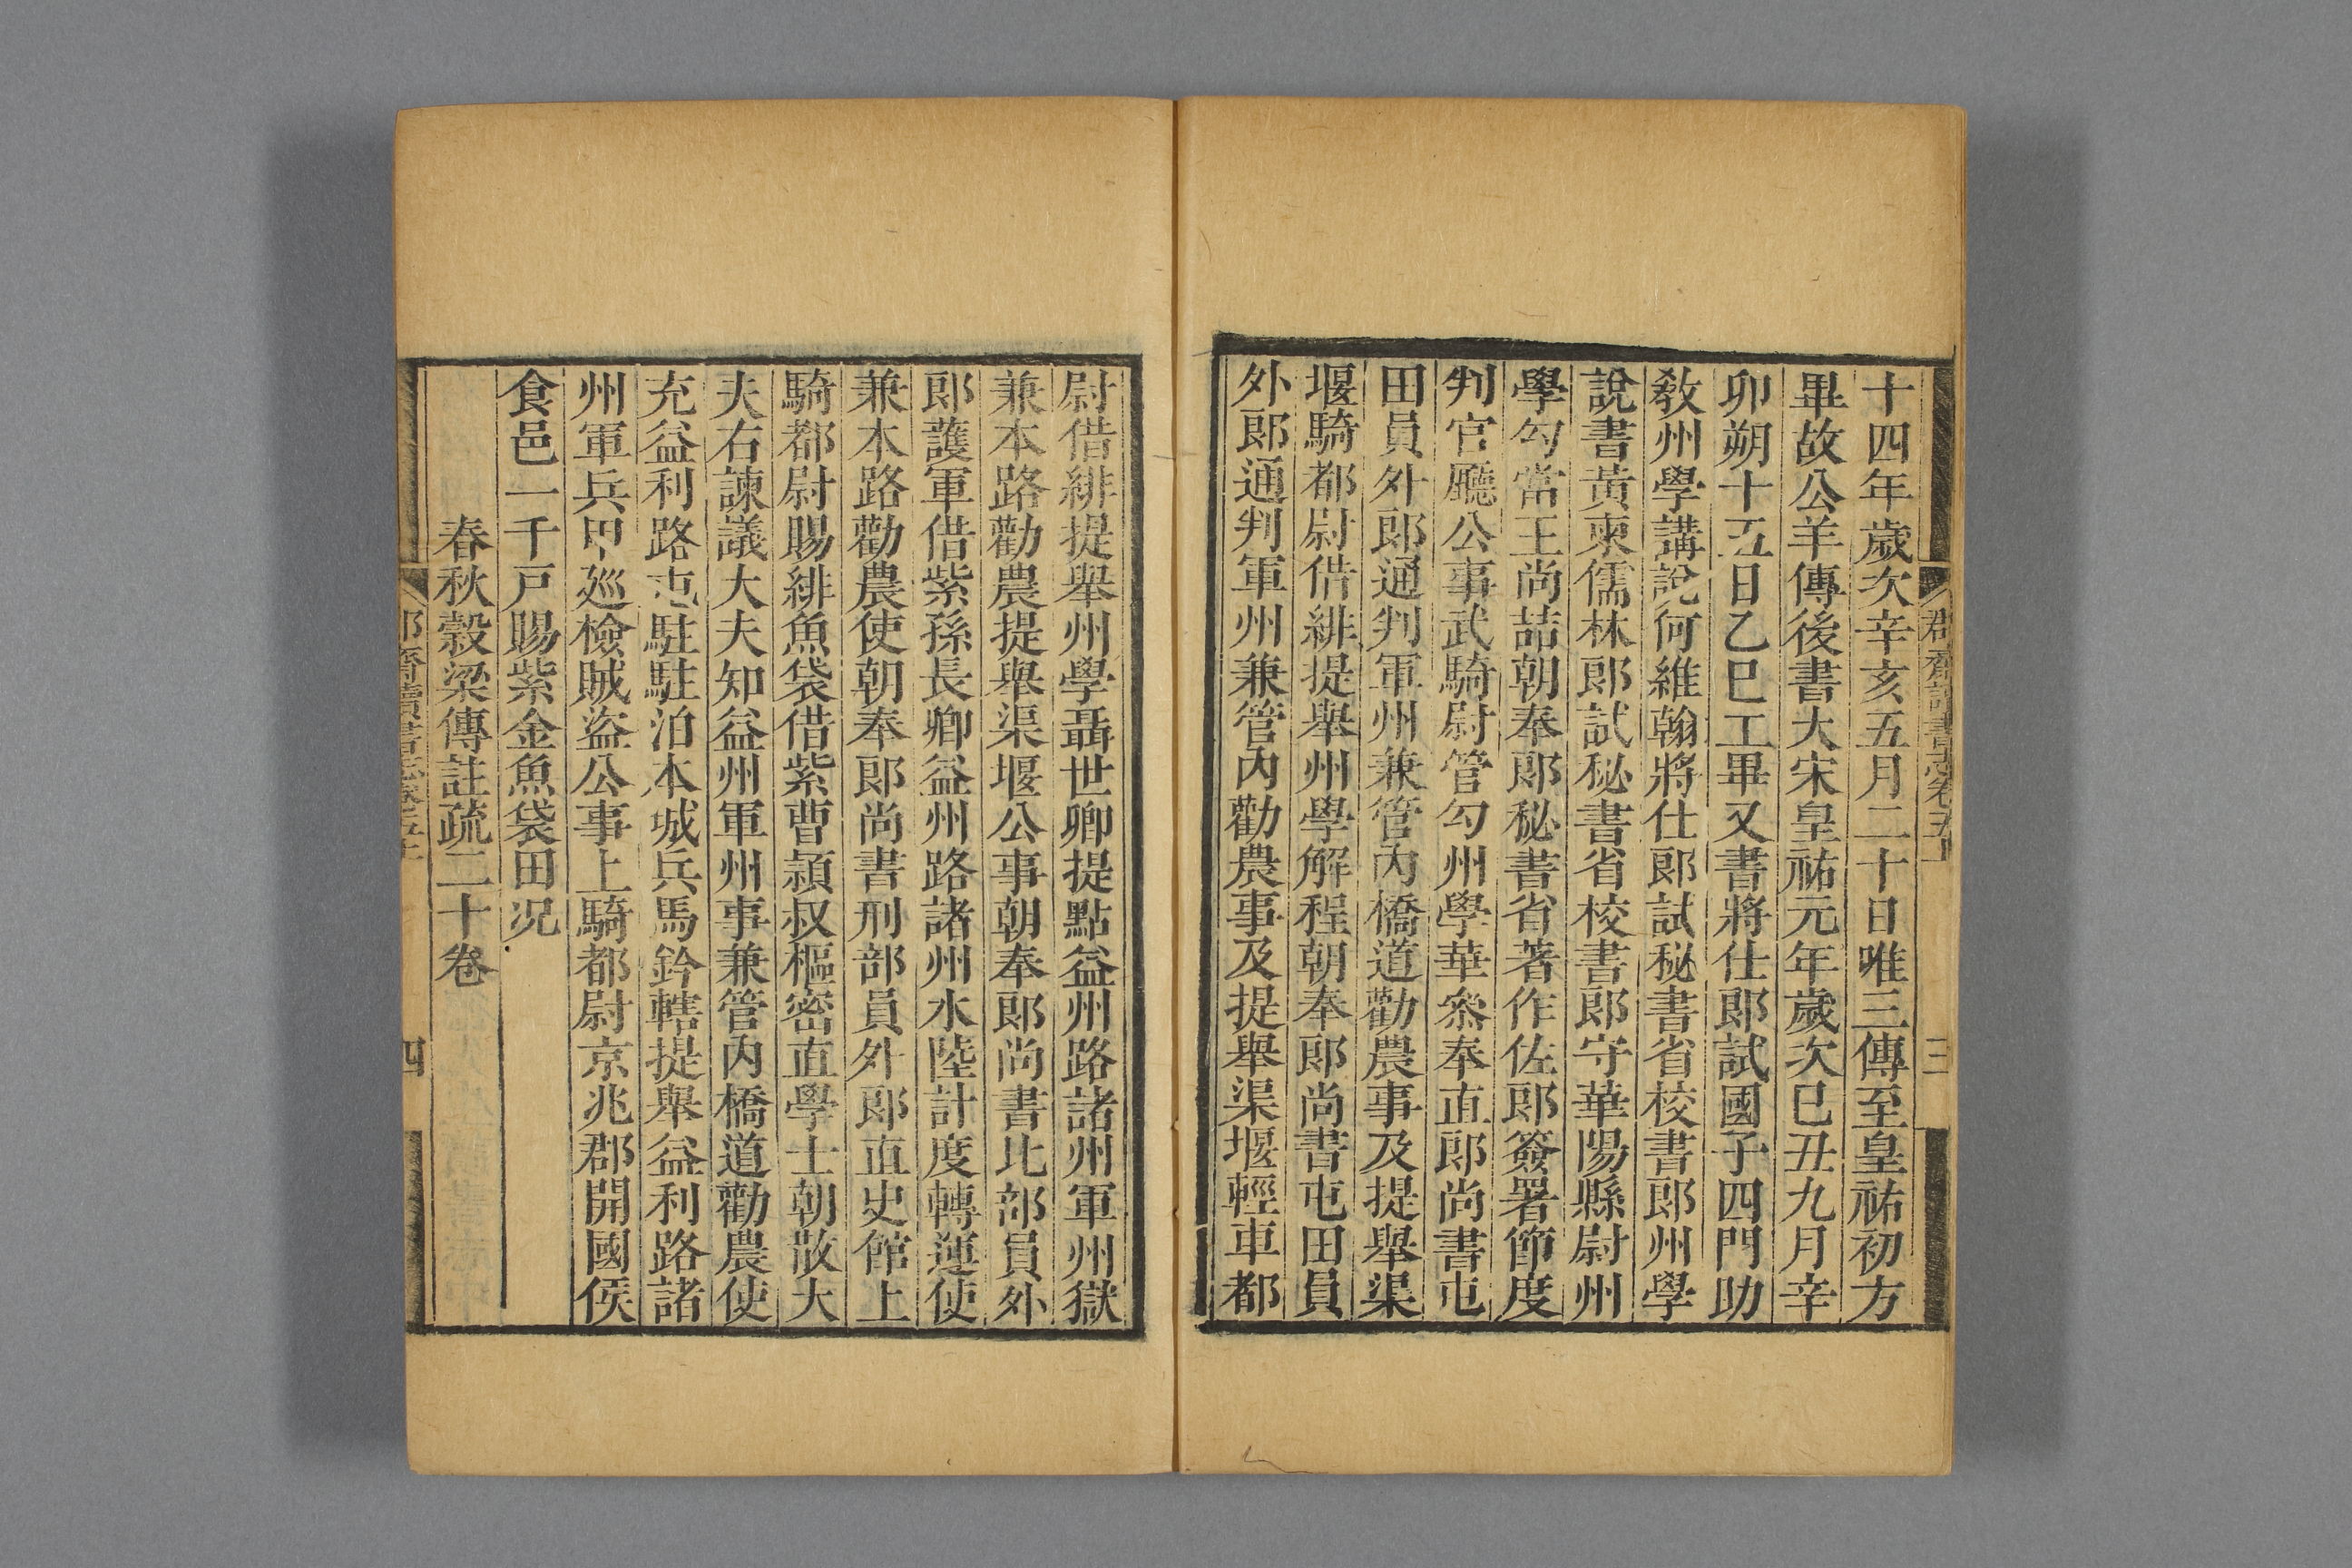 十四年歲次辛亥五月二十日唯三傳至皇祐初方
畢故公羊傳後書大宋皇祐元年歲次巳丑九月辛
卯朔十五日乙巳工畢又書將仕郎試國子四門助
敎州學講說何維翰將仕郎試秘書省校書郎州學
說書黃柬儒林郎試秘書省校書郎守華陽縣尉州
學勾當王尚喆朝奉郎秘書省著作佐郎簽署節度
判官廳公事武騎尉管勾州學華叅奉直郎尚書屯
田員外郎通判軍州兼管內橋道勸農事及提舉渠
堰騎都尉借緋提舉州學解程朝奉郎尚書屯田員
外郎通判軍州兼管內勸農事及提舉渠堰輕車都
尉借緋提舉州學聶世卿提點益州路諸州軍州獄
兼本路勸農提舉渠堰公事朝奉郎尚書比部員外
郎護軍借紫孫長卿益州路諸州水陸計度轉運使
兼本路勸農使朝奉郎尚書刑部員外郎直史館上
騎都尉賜緋魚袋借紫曹潁叔樞密直學士朝散大
夫右諫議大夫知益州軍州事兼管內橋道勸農使
充益利路屯駐駐泊本城兵馬鈐轄提舉益利路諸
州軍兵甲巡檢賊盜公事上騎都尉京兆郡開國侯
食邑一千戸賜紫金魚袋田況
春秋穀梁傳註疏二十卷
郡齋讀書志卷五上
三
四